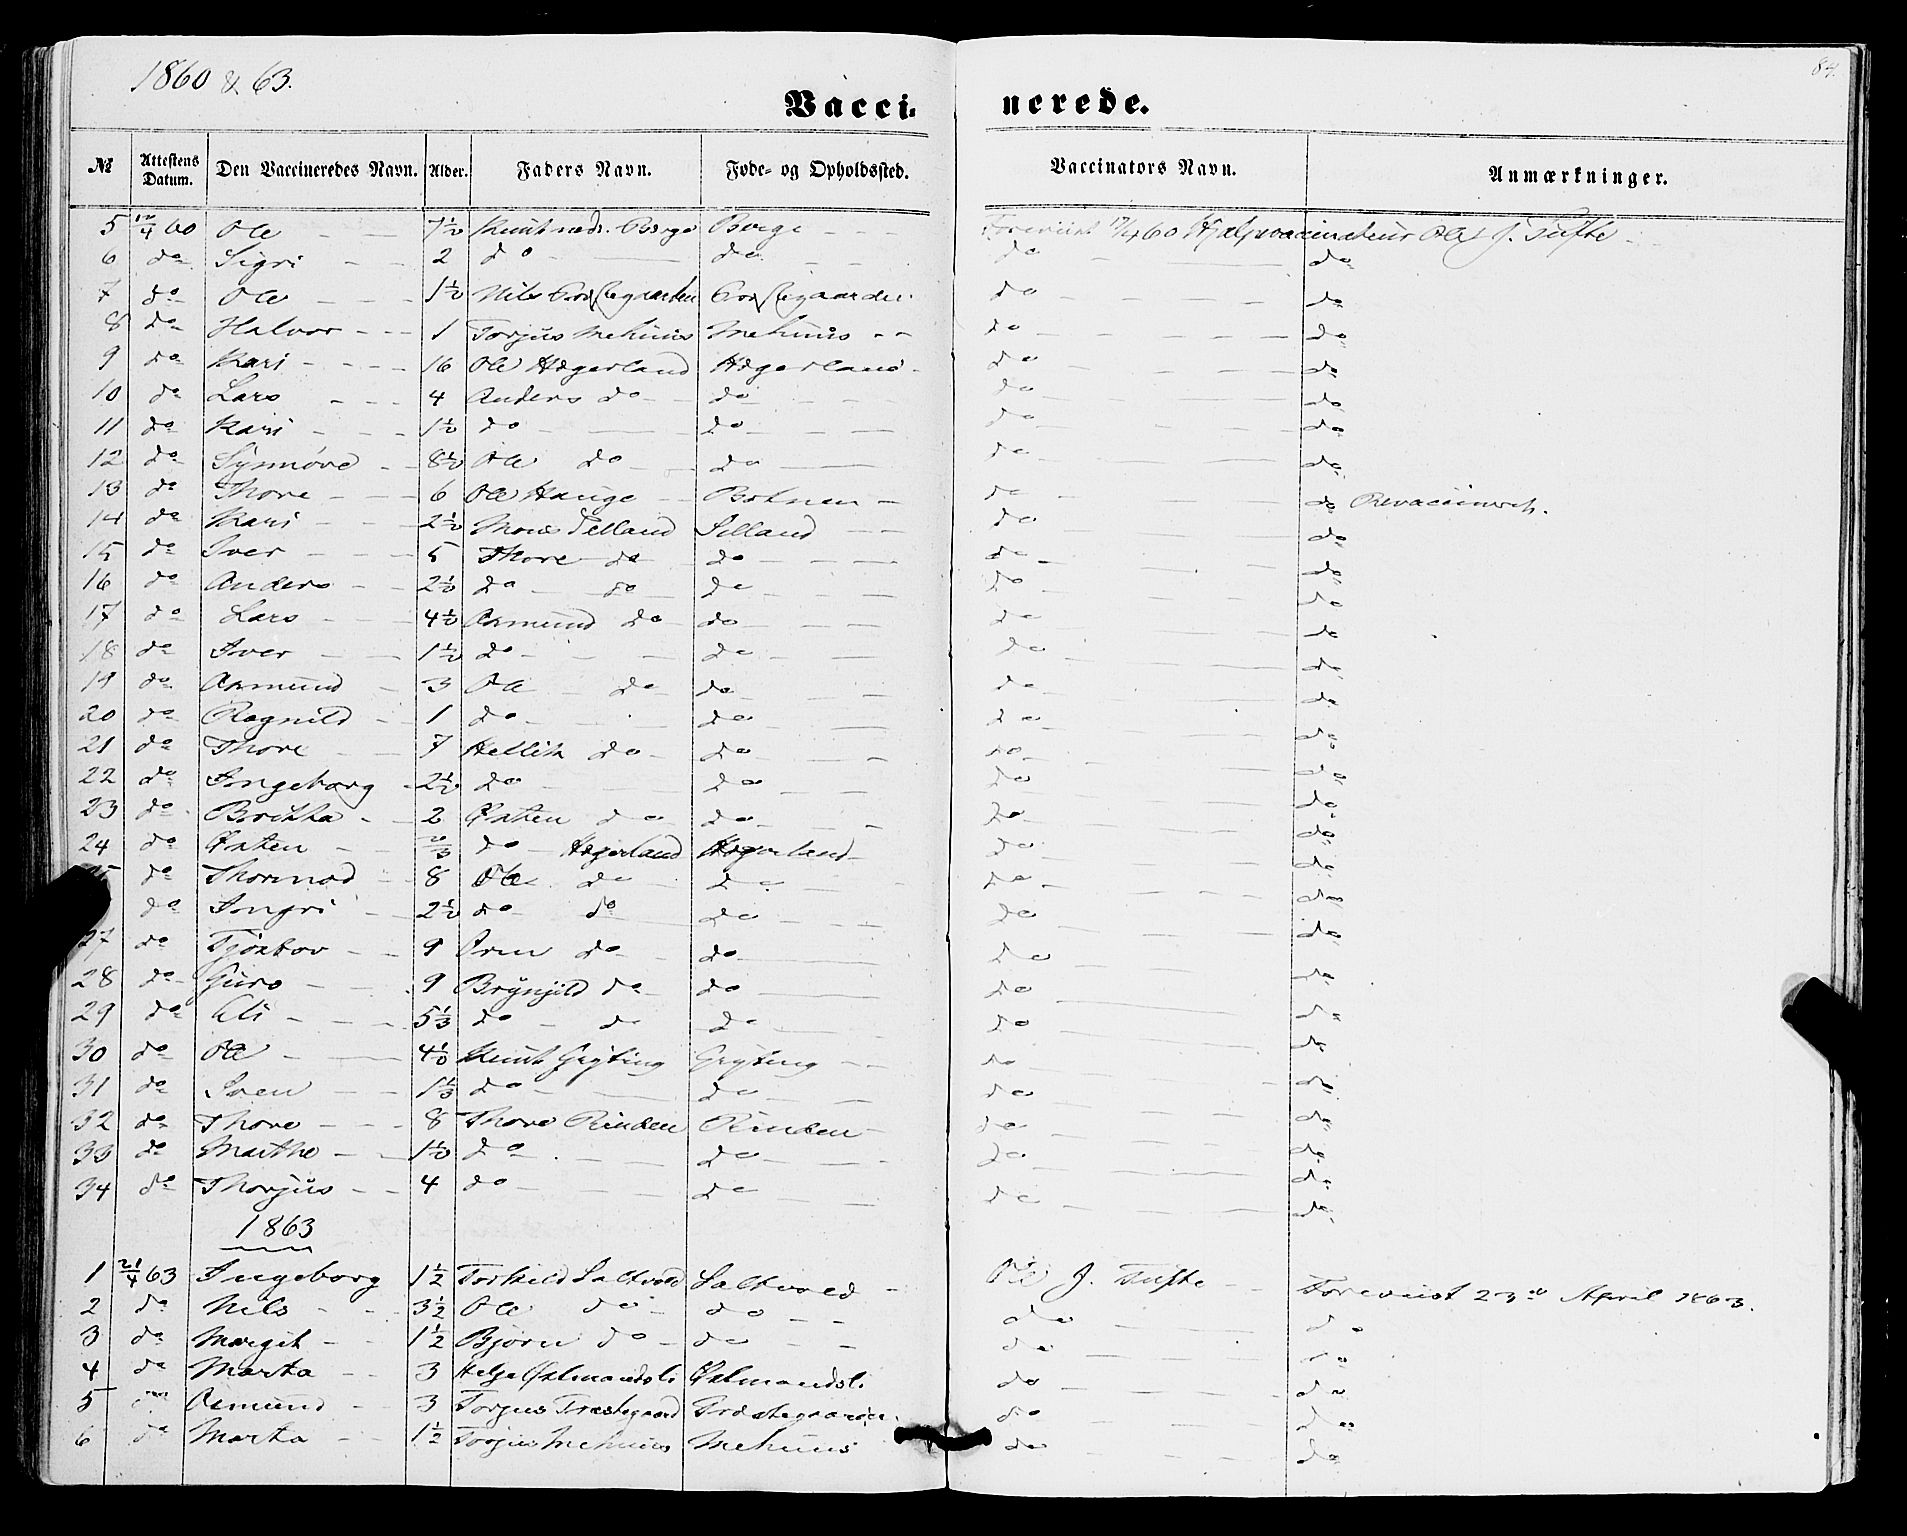 1860 & 63.
84.
Vaccinerede.
№ Attestens Datum. Den Vaccineredes Navn. Alder. Faders Navn. Føde- og Opholdssted. Vaccinators Navn. Anmærkninger.
5 12/4 60 Ole 7½ Knut Borge Foreviist 17/4 60 Hjelpevaccinateur Ole J. Tufte
6 do Sigri 2 do do do do
7 do Ole 1½ Nils do do
8 do Halvor 1 Torjus Mehuus Mehuus do do
9 do Kari 16 Ole Hægerland Hægerland do do
10 do Lars 4 Anders do do do do
11 do Kari 1½ do do do do
12 do Synnøve 8½ Ole do do do do
13 do Thore 6 Ole Hauge do do Revaccineret.
14 do Kari 2½ Selland Selland do do
15 do Iver 5 Thore do do do do
16 do Anders 2½ do do do do do
17 do Lars 4½ Asmund do do do do
18 do Iver 1½ do do do do
19 do Asmund 3 Ole do do do do
20 do Ragnild 1 do do do do
21 do Thore 7 Hellik do do do do
22 do Ingeborg 2½ do do do do
23 do Birittha 2 Østen do do do do
24 do Østen 2/3 do Hægerland Hægerland do do
do Thormod 8 Ole do do do do
do Ingri 2½ do do do do do
27 do Tjøstov 9 Orm do do do do
28 do Guro 9 Brynjild do do do do
29 do Eli 5⅓ do do do do do
30 do Ole 4½ Knut Gryting Gryting do do
31 do Sven 1⅓ do do do do
32 do Thore 8 Thore Rinden Rinden do do
33 do Marthe 1½ do do do do
34 do Thorjus 4 do do do do
1863
1 21/4 63 Ingeborg 1½ Torkild Saltvold Saltvold Ole J. Tufte Foreviist 23de April 1863.
2 do Nils 3½ Ole do do do do
3 do Margit 1½ Bjørn do do do do
4 do Marta 3 Helge do do
5 do Asmund 3 Torjus Præstegaard do do
6 do Marta 1½ Torjus Mehuus Mehuus do do